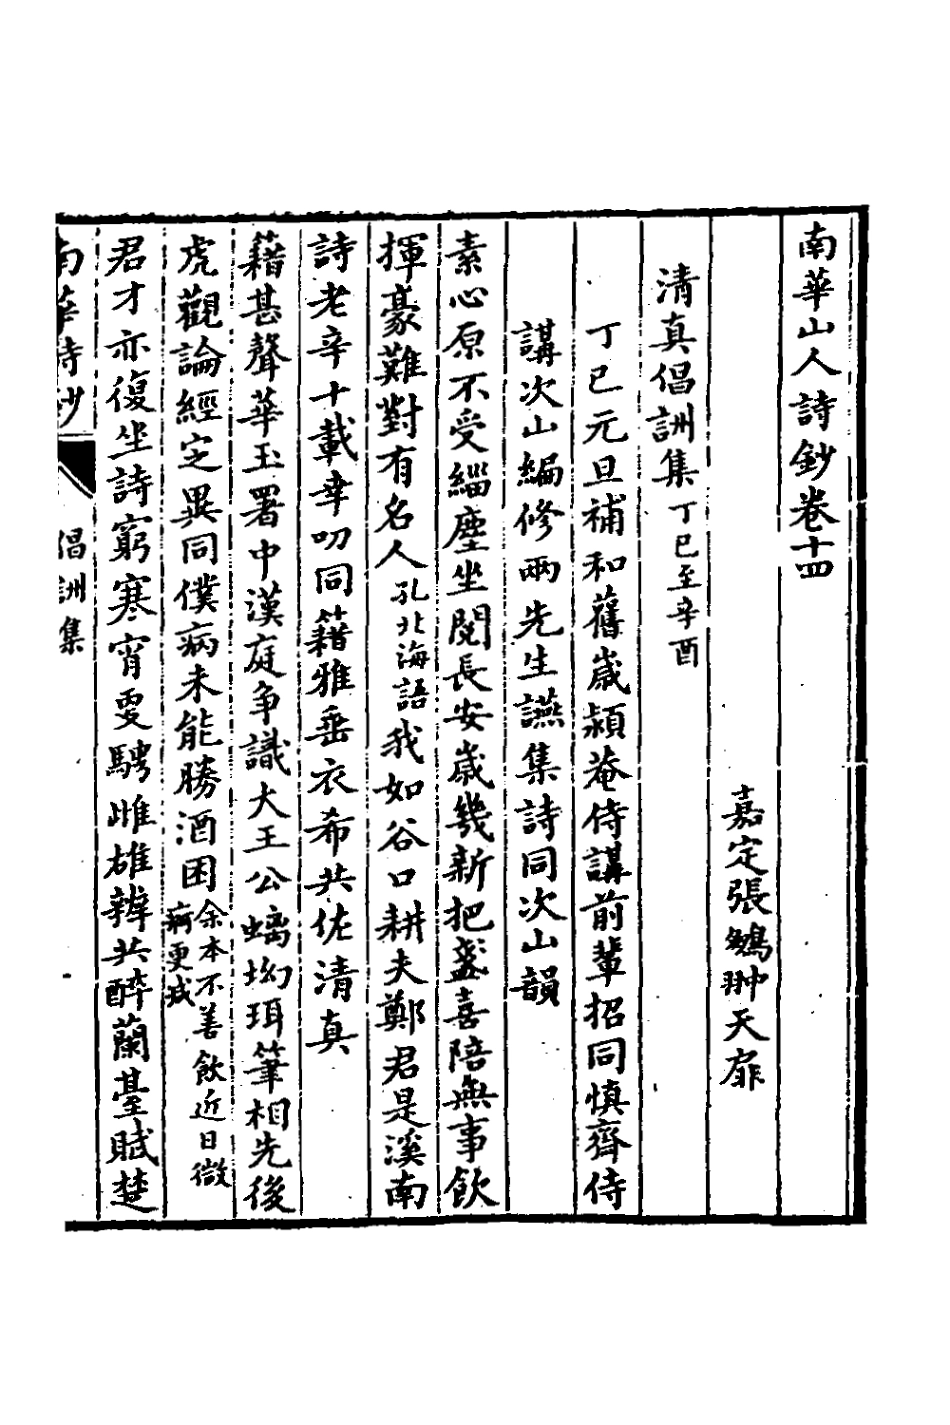 南華山人詩鈔卷十四
嘉定張鵬翀天扉
清真倡詶集丁巳至辛酉
丁巳元旦補和舊嵗潁菴侍講前輩招同慎齊侍
講次山編修兩先生讌集詩同次山韻
素心原不受緇塵坐閱長安嵗幾新把盞喜陪無事飲
揮豪難對有名人孔北海語我如谷口耕夫鄭君是溪南
詩老辛十載幸叨同籍雅垂衣希共佐清真
籍甚聲華玉署中漢庭争識大王公螭坳珥筆相先後
虎觀論經定異同僕病未能勝酒困余本不善飲近日微
病更戒
君才亦復坐詩窮寒宵更騁雌雄辨共醉蘭臺賦楚
南華詩鈔
倡詶集